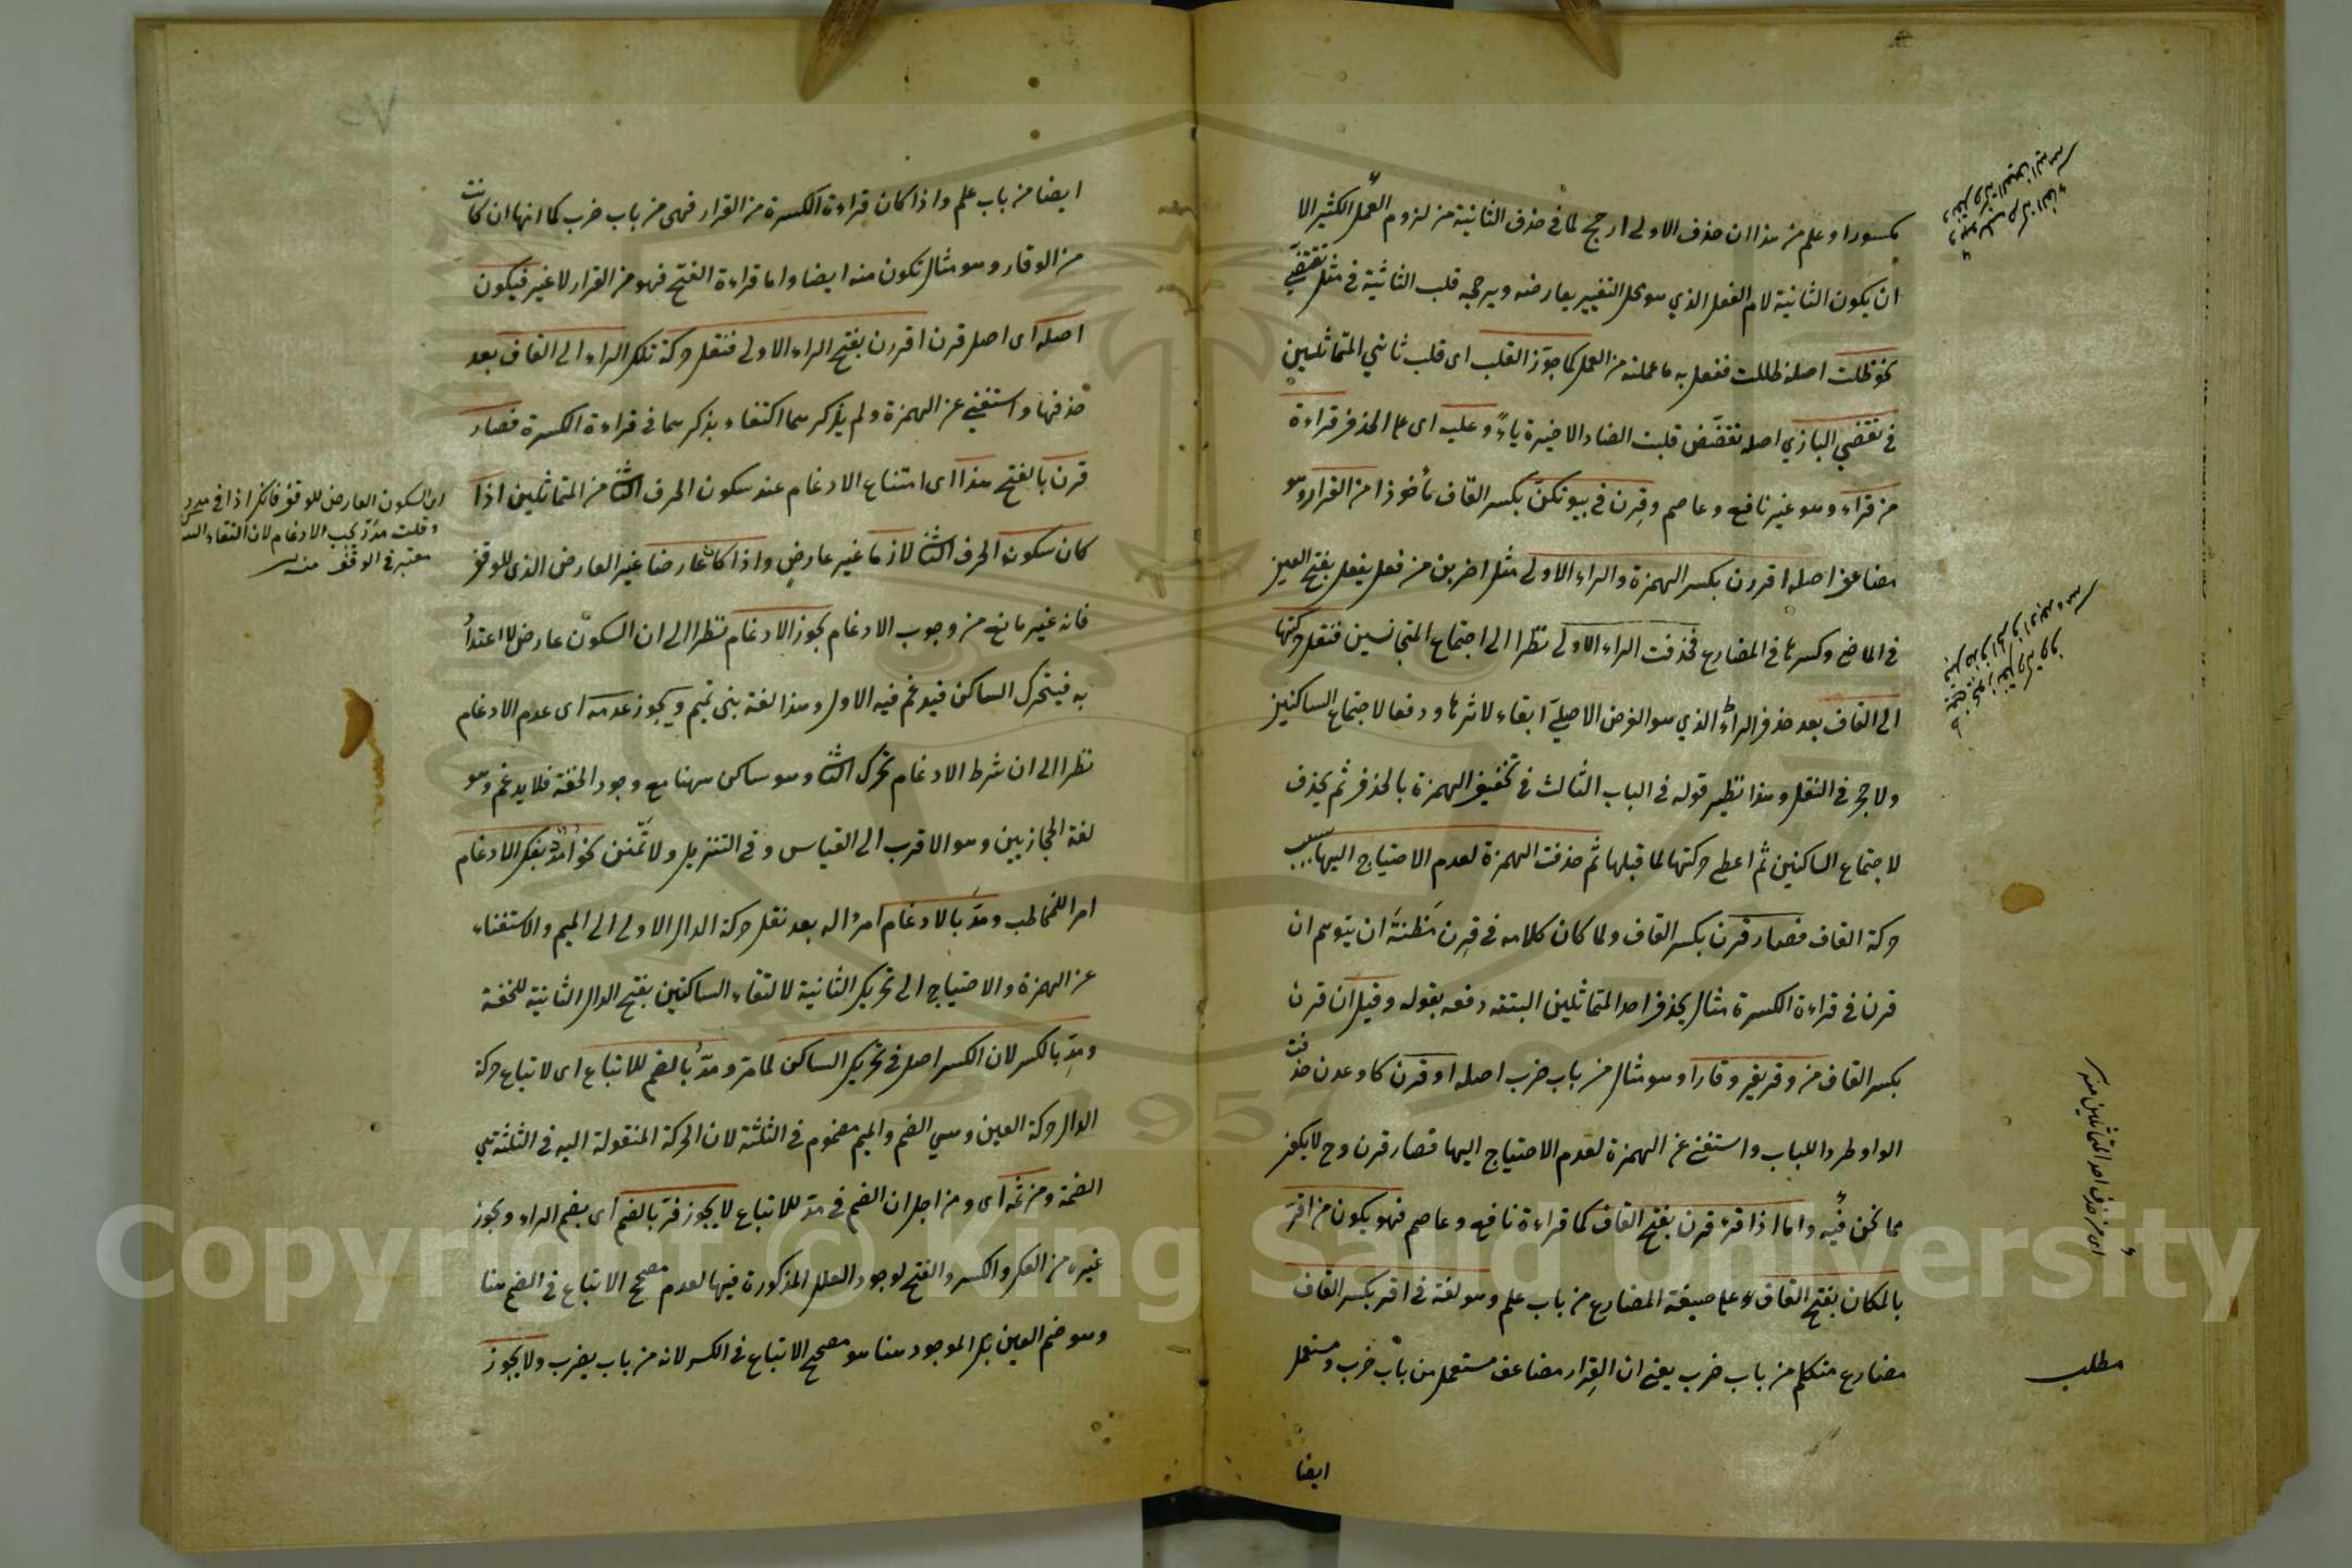 مكسورا وعلم من هذا ان حذف الاولى ارجح لما في حذف الثانية من لزوم العمل الكثير الا
ان يكون الثانية لام الفعل الذي هو محل التغيير يعارضه ويرجحه قلب الثانية في مثل تقضي
نحو ظلت اصله ظللت ففعل به ما عملته من العمل كما جوّز القلب اى قلب ثاني المتماثلين
في تقضي البازي اصله تقضّض قلبت الضاد الاخيرة ياءً وعليه اى على الحذف قراءة
من قراء وهو غير نافع وعاصم وقِرن في بيوتكنّ بكسر القاف مأخوذا من القرار وهو
مضاعف اصله اقررن بكسر الهمزة والراء الاولى مثل اضربن من فعل يفعل بفتح العين
في الماضي وكسرها في المضارع فحذفت الراء الاولى نظرا الى اجتماع المتجانسين فنقل حركتها
الى القاف بعد حذف الراء الذي هو الغرض الاصلي ابقاء لاثرها ودفعا لاجتماع الساكنين
ولا حجر في النقل وهذا نظير قوله في الباب الثالث في تخفيف الهمزة بالحذف ثم يحذف
لاجتماع الساكنين ثم اعطى حركتها لما قبلها ثم حذفت الهمزة لعدم الاحتياج اليها بسبب
حركة القاف فصار قرن بكسر القاف ولما كان كلامه في قِرن مَظنَّة ان يتوهم ان
قرن في قراءة الكسرة مثال بحذف احد المتماثلين البتة دفعه بقوله وقيل ان قرن
بكسر القاف من وقر يقر وقارا وهو مثال من باب ضرب اصله اوقرن كاوعدن حذفت
الواو طردا للباب واستغنى عن الهمزة لعدم الاحتياج اليها فصار قرن وح لا يكون
مما نحن فيه واما اذا قرء قرن بفتح القاف كما قراءة نافع وعاصم فهو يكون من اقرّ
بالمكان بفتح القاف على صيغة المضارع من باب علم وهو لغة في اقر بكسر القاف
مضارع متكلم من باب ضرب يعني ان القِرار مضاعف مستعمل من باب ضرب ومستعمل
ايضا
اى من حذف احد المتماثلين منه
مطلب
٧٥
ايضا من باب علم واذا كان قراءة الكسرة من القرار فهى من باب ضرب كما انها ان كانت
من الوقار وهو مثال تكون منه ايضا واما قراءة الفتح فهو من القرار لا غير فيكون
اصله اى اصل قرن اقررن بفتح الراء الاولى فنقل حركة تلك الراء الى القاف بعد
حذفها واستغنى عن الهمزة ولم يذكرهما اكتفاء بذكرهما في قراءة الكسرة فصار
قرن بالفتح هذا اى امتناع الادغام عند سكون الحرف الثاني من المتماثلين اذا
كان سكون الحرف الثاني لازما غير عارض واذا كان عارضا غير العارض الذى للوقف
فانه غير مانع من وجوب الادغام يجوز الادغام نظرا الى ان السكون عارض لا اعتداد
به فيتحرك الساكن فيدغم فيه الاول وهذا لغة بنى تميم ويجوز عدمه اى عدم الادغام
نظرا الى ان شرط الادغام تحرك الثاني وهو ساكن ههنا مع وجود الخفة فلا يدغم وهو
لغة الحجازيين وهو الاقرب الى القياس وفي التنزيل ولا تمنن نحو امدد بفك الادغام
امر المخاطب ومدّ بالادغام امر له بعد نقل حركة الدال الاولى الى الميم والاستغناء
عن الهمزة والاحتياج الى تحريك الثانية لالتقاء الساكنين بفتح الدال الثانية للخفة
ومدِّ بالكسر لان الكسر اصل في تحريك الساكن لما مر ومدُّ بالضم للاتباع اى لاتباع حركة
الدال حركة العين وهي الضم والميم مضموم في الثلثة لان الحركة المنقولة اليه في الثلثة هي
الضمة ومن ثمه اى ومن اجل ان الضم في مد للاتباع لا يجوز فرّ بالضم اى بضم الراء ويجوز
غيره من الفك والكسر والفتح لوجود العلل المذكورة فيها لعدم مصحح الاتباع في الضم هنا
وهو ضم العين بل الموجود هنا هو مصحح الاتباع في الكسر لانه من باب يضرب ولا يجوز
اى السكون العارض للوقف فانك اذا
وقلت مدّ يجب الادغام لان التقاء
معتبر في الوقف منه